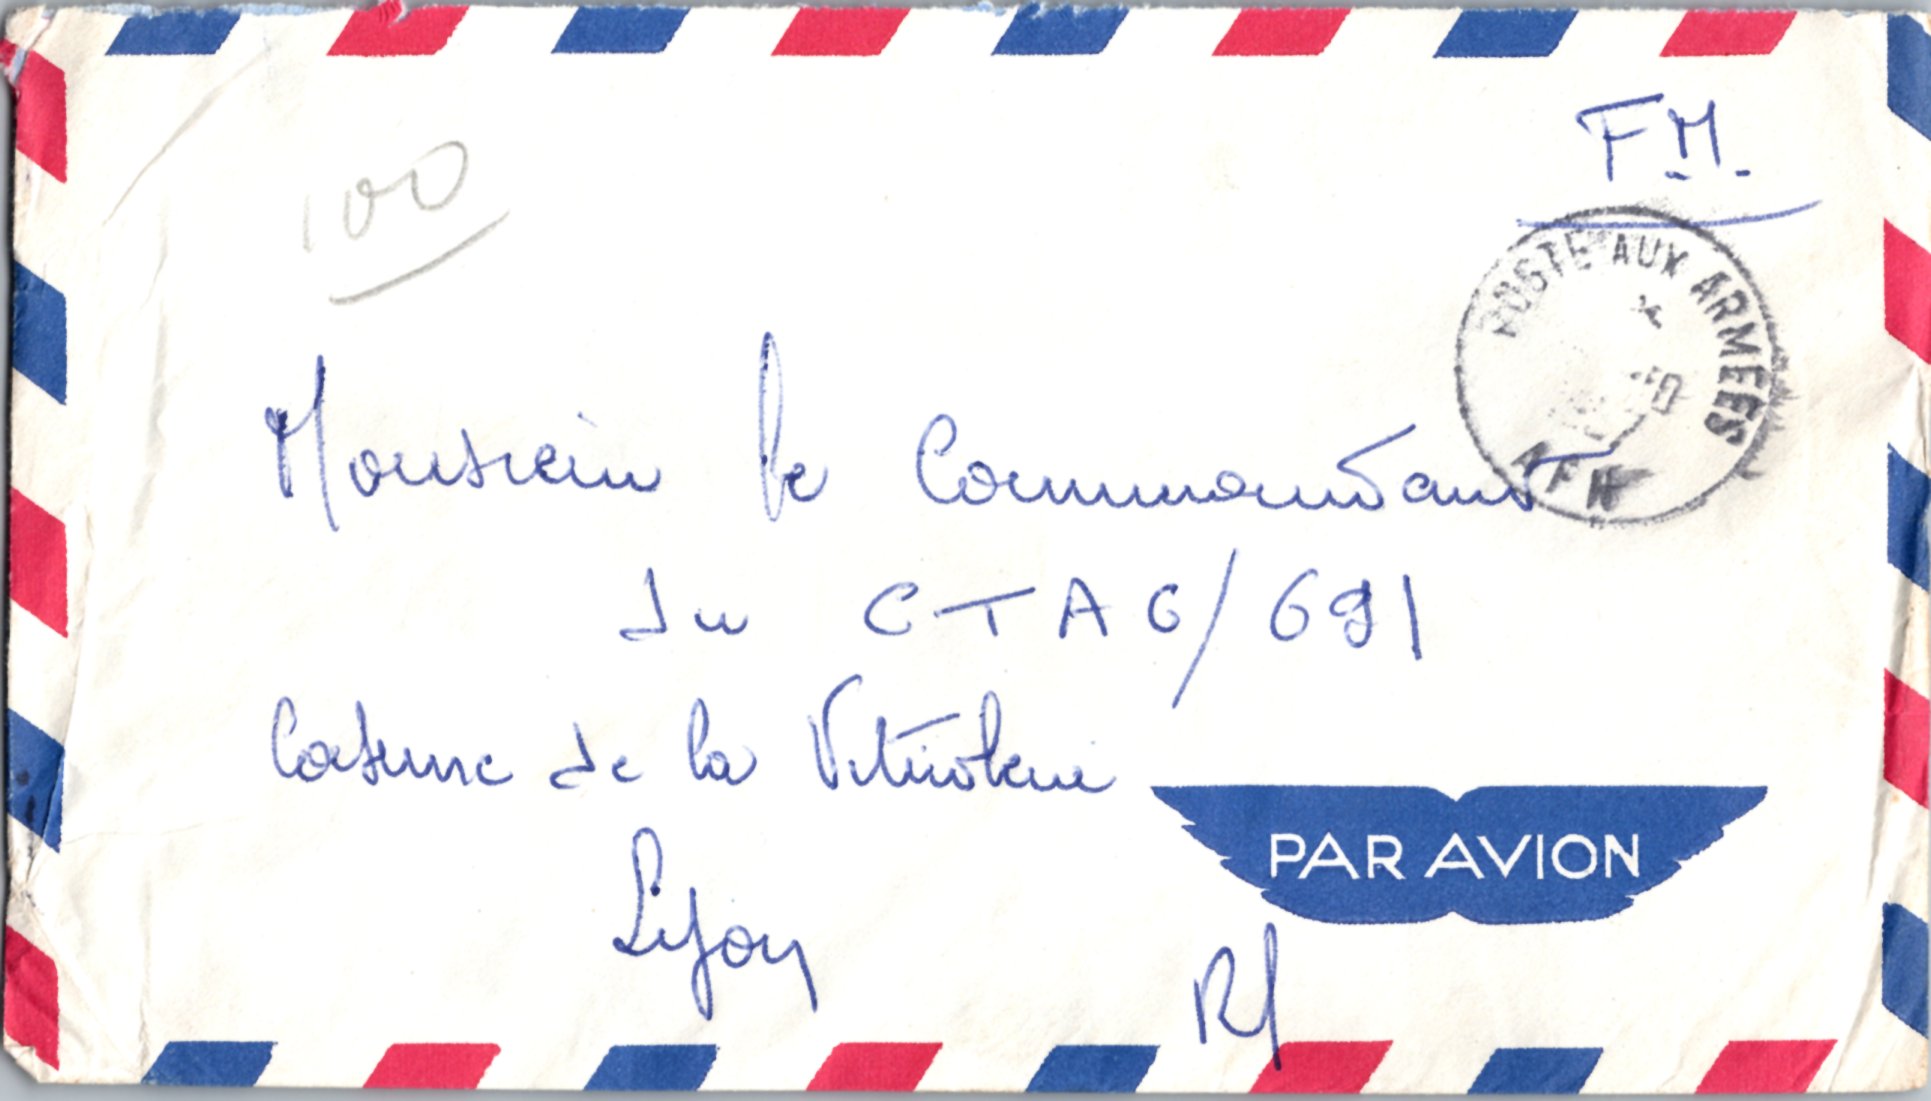 F.M.
100
POSTE AUX ARMEES
AFN
Monsieur le Commandant
du CTA 6/691
Caserne de la Vitriolerie
PAR AVION
Lyon